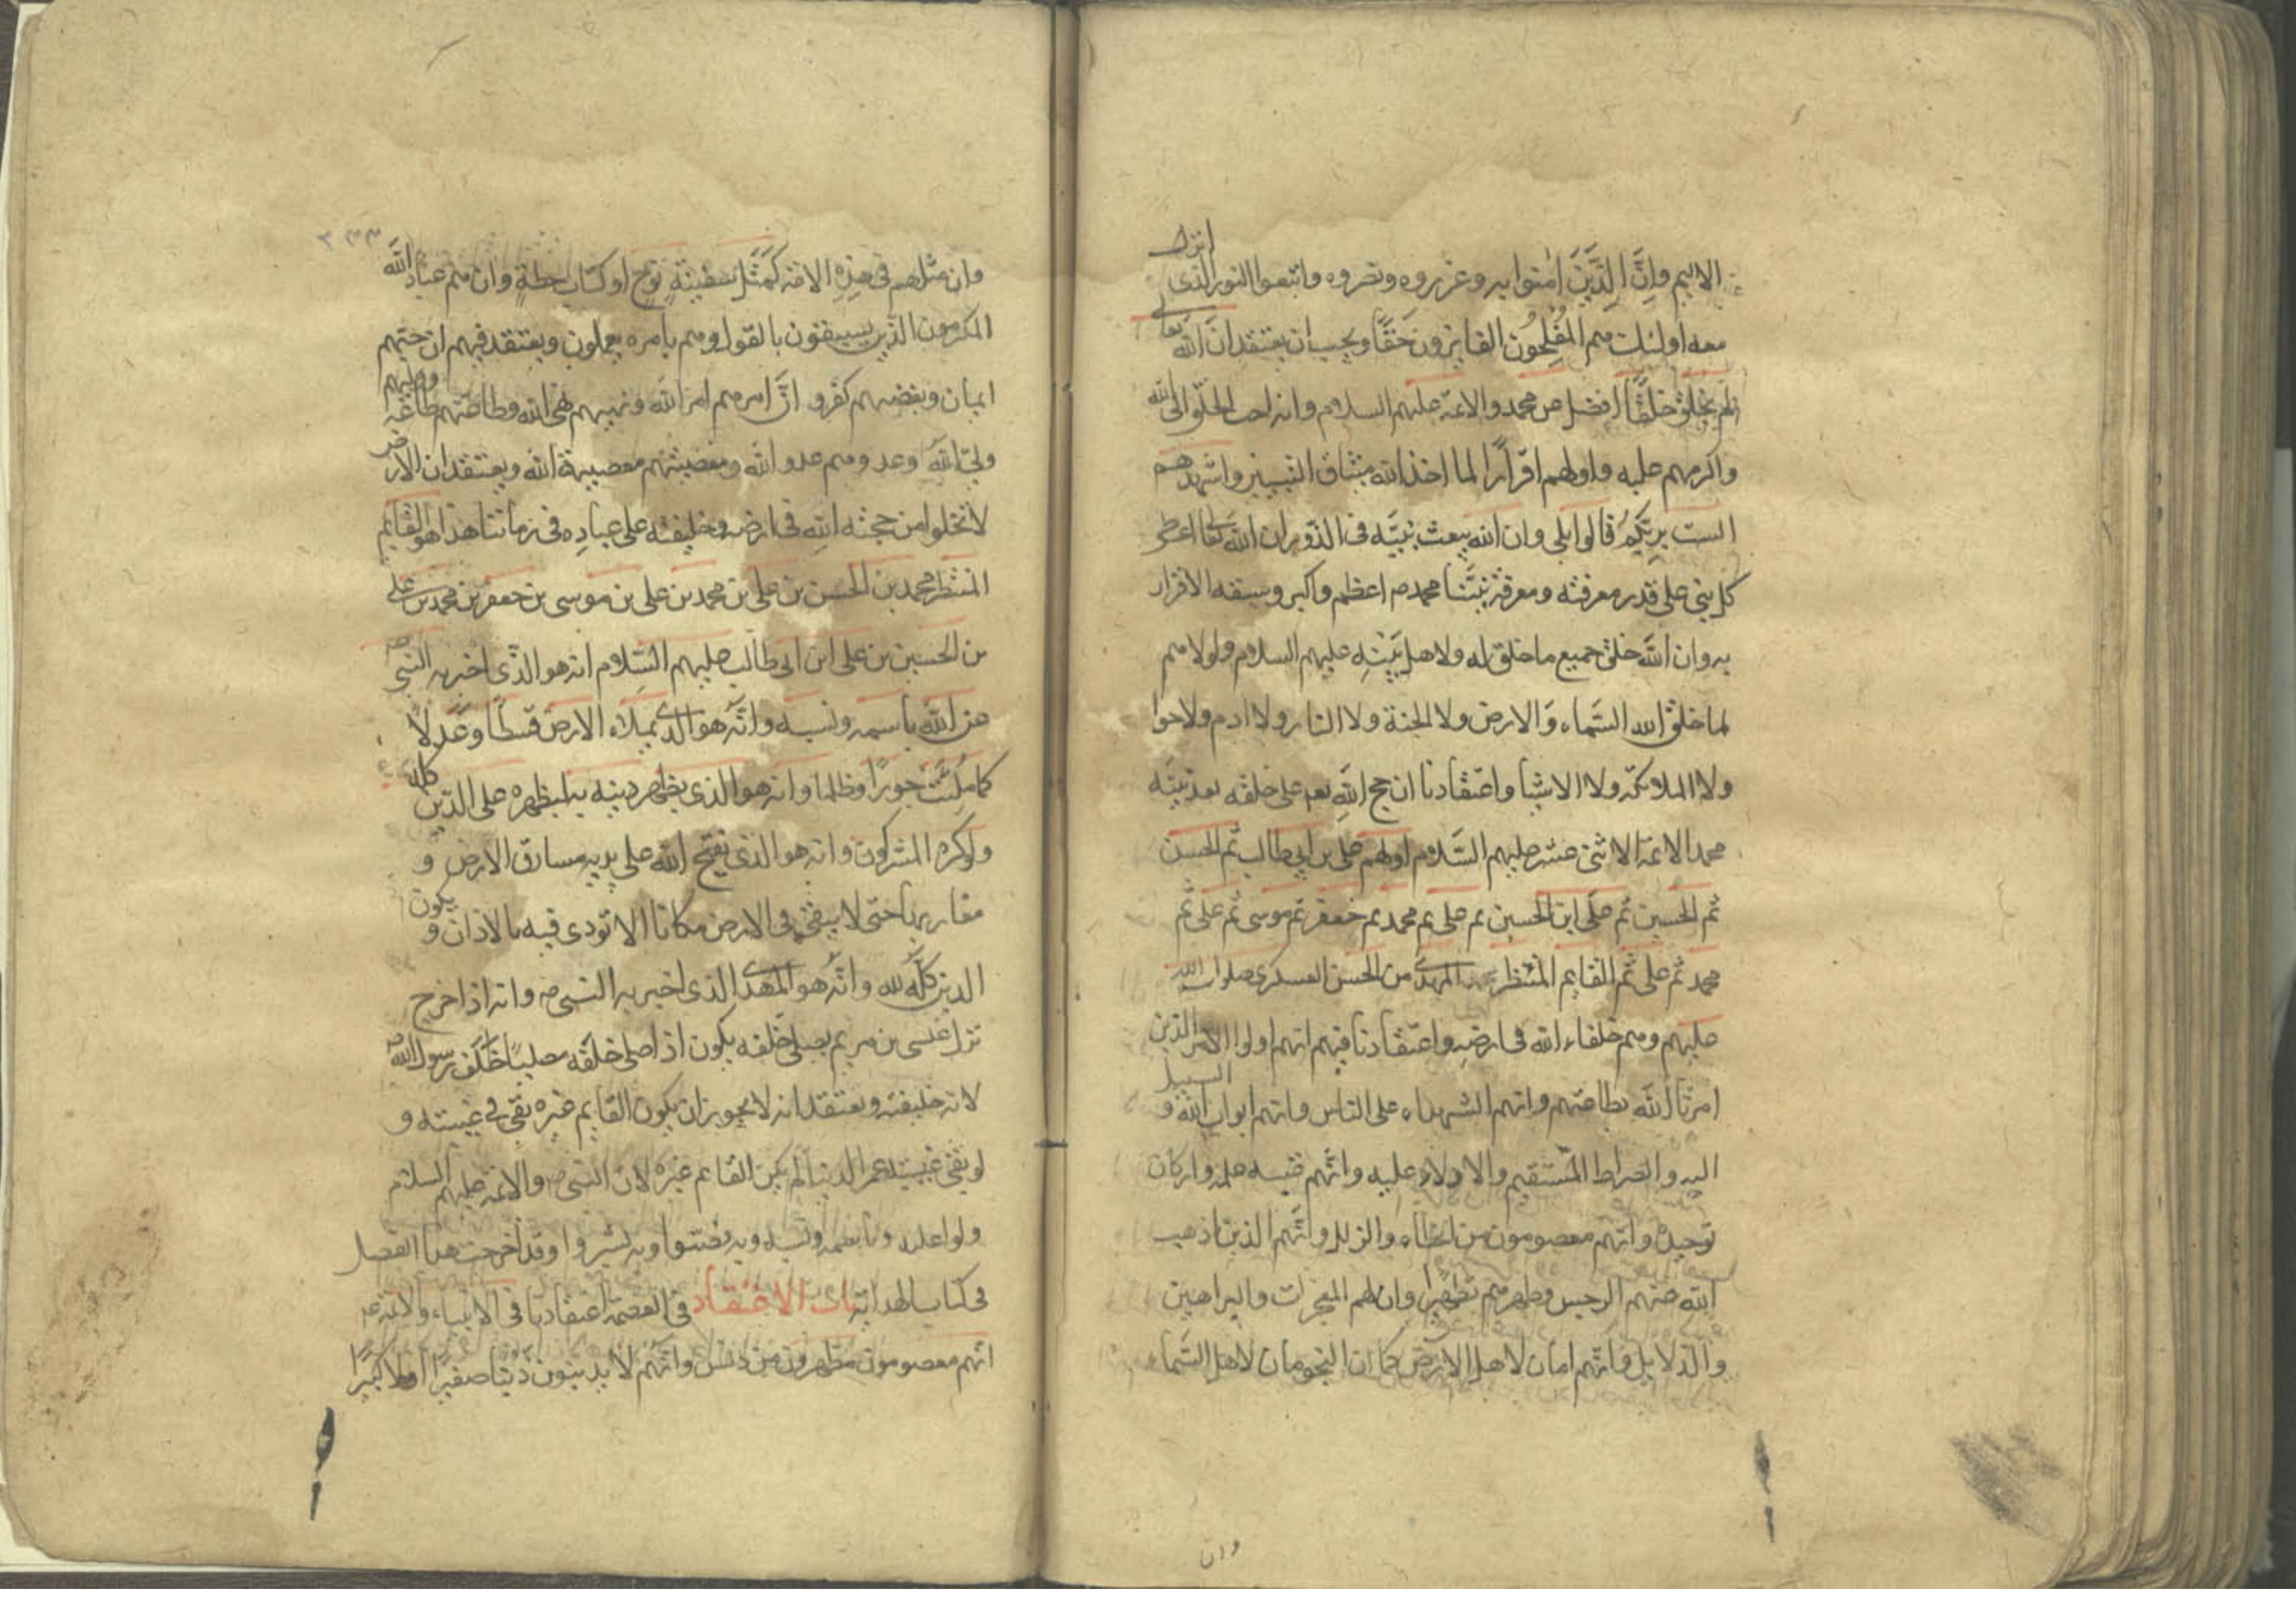 الاليم وانَّ الَّذينَ اٰمنوا به وعزروه ونصروه واتبعوا النور الذى انزل
معه اولئك هم المُفلِحُون الفايزون حَقًّا ويجب ان يعتقد انَّ اللّه تعالى
لم يخلق خلقًا افضل من محمد والائمة عليهم السلام وانه احب الخلق الى اللّه
واكرمهم عليه واولهم اقرارًا لما اخذ اللّه ميثاق النبيين واشهدهم
الست بربكم قالوا بلى وان اللّه بعث نبيّه فى الذر وان اللّه تعالى اعطى
كل نبى على قدر معرفته ومعرفة نبيّنا محمد ص اعظم واكبر وسبقه الاقرار
به وان اللّه خلق جميع ما خلق له ولاهل بَيْتِه عليهم السلام ولولاهم
لما خلق اللّه السَّماء وَالارض ولا الجنة ولا النار ولا ادم ولا حوا
ولا الملائكة ولا الاشيا واعتقادنا ان حجج اللّهِ تعم على خلقه بعد نبيّه
محمد الائمة الاثنى عشر عليهم السَّلام اولهم على بن ابى طالب ثم الحسن
ثم الحسين ثم على ابن الحسين ثم على ثم محمد ثم جعفر ثم موسى ثم على ثم
محمد ثم على ثم القايم المنتظر المهدى من الحسن العسكرى صلوات اللّه
عليهم وهم خلفاء اللّه فى ارضه واعتقادنا فيهم انهم اولوا الامر الذين
امرنا اللّه بطاعتهم وانهم الشهداء على الناس وانهم ابواب اللّه و السبيل
اليه والصراط المستقيم والادلاء عليه وانهم عيبه علمه واركان
توحيده وانهم معصومون من الخطاء والزلل وانَّهم الذين اذهب
اللّه عنهم الرجس وطهرهم تطهيرا وان لهم المعجزات والبراهين
والدلايل وانهم امان لاهل الارض كما ان النجوم امان لاهل السَّماء
وان
وان مثلهم فى هذِهِ الامة كَمَثَل سَفينَةِ نوح او كتاب حطةٍ وان هم عباد اللّه
المكرمون الذين يسبقون بالقول وهم بامره يعملون ويعتقد فيهم ان حبّهم
ايمان وبغضهم كفر و انَّ امرهم امر اللّه ونهيهم نهى اللّه وطاعتهم طاعة وليهم
ولىّ اللّه وعدوهم عدو اللّه ومعصيتهم معصيية اللّه ويعتقد ان الارض
لا تخلوا من حجته اللّهِ فى ارضه وخليفته على عبادِه فى زماننا هذا هو القايم
المنتظر محمد بن الحسن بن على بن محمد بن على بن موسى بن جعفر بن محمد بن على
بن الحسين بن على ابن ابى طالب عليهم السَّلام انه هو الذى اخبر به النبى ص
عن اللّه باسمه ونسبه وانّه هو الذى يملاء الارض قسطًا وعَدلًا
كما مُلِئَت جورًا وظلما وانه هو الذى يظهر دينه به ليظهره على الدّين كله
ولو كره المشركون وانه هو الذى يفتح اللّه على يديه مسارق الارض و
مغاربها حتى لا يبقى فى الارض مكانا الا تودى فيه بالاذان و يكون
الدين كلّه للّه وانّه هو المهدى الذى اخبر به النبى ص وانه اذا خرج
نزل عيسى بن مريم يصلى خلفه يكون اذا صلى خلفه مصليًا خلف رسول اللّه ص
لانه خليفته ويعتقد انه لا يجوز ان يكون القايم غيره بقى فى غيبته و
لو بقى غيبته عمر الدنيا لم يكن القايم غيره لان النبى ص والائمة عليهم السلام
ولوا عليه و باسمه ونسبه وبه نصّوا وبه بشروا وقد اخرجت هذا الفصل
فى كتاب الهداية باب الاعتقاد فى العصمة اعتقادنا فى الانبياء والائمة
انهم معصومون مطهرون من دنس وانهم لا يذنبون ذنبًا صغيرًا ولا كبيرًا